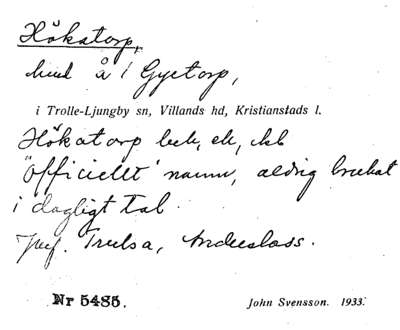 Hökatorp,
hmd å 1 Gyetorp,
i Trolle-Ljungby sn, Villands hd, Kristianstads l.
Hökatorp bek, ek, kb
"officiellt" namn, aldrig brukat
i dagligt tal
Jmf. Trulsa, Anderslass.
Nr 5485.
John Svensson. 1933.